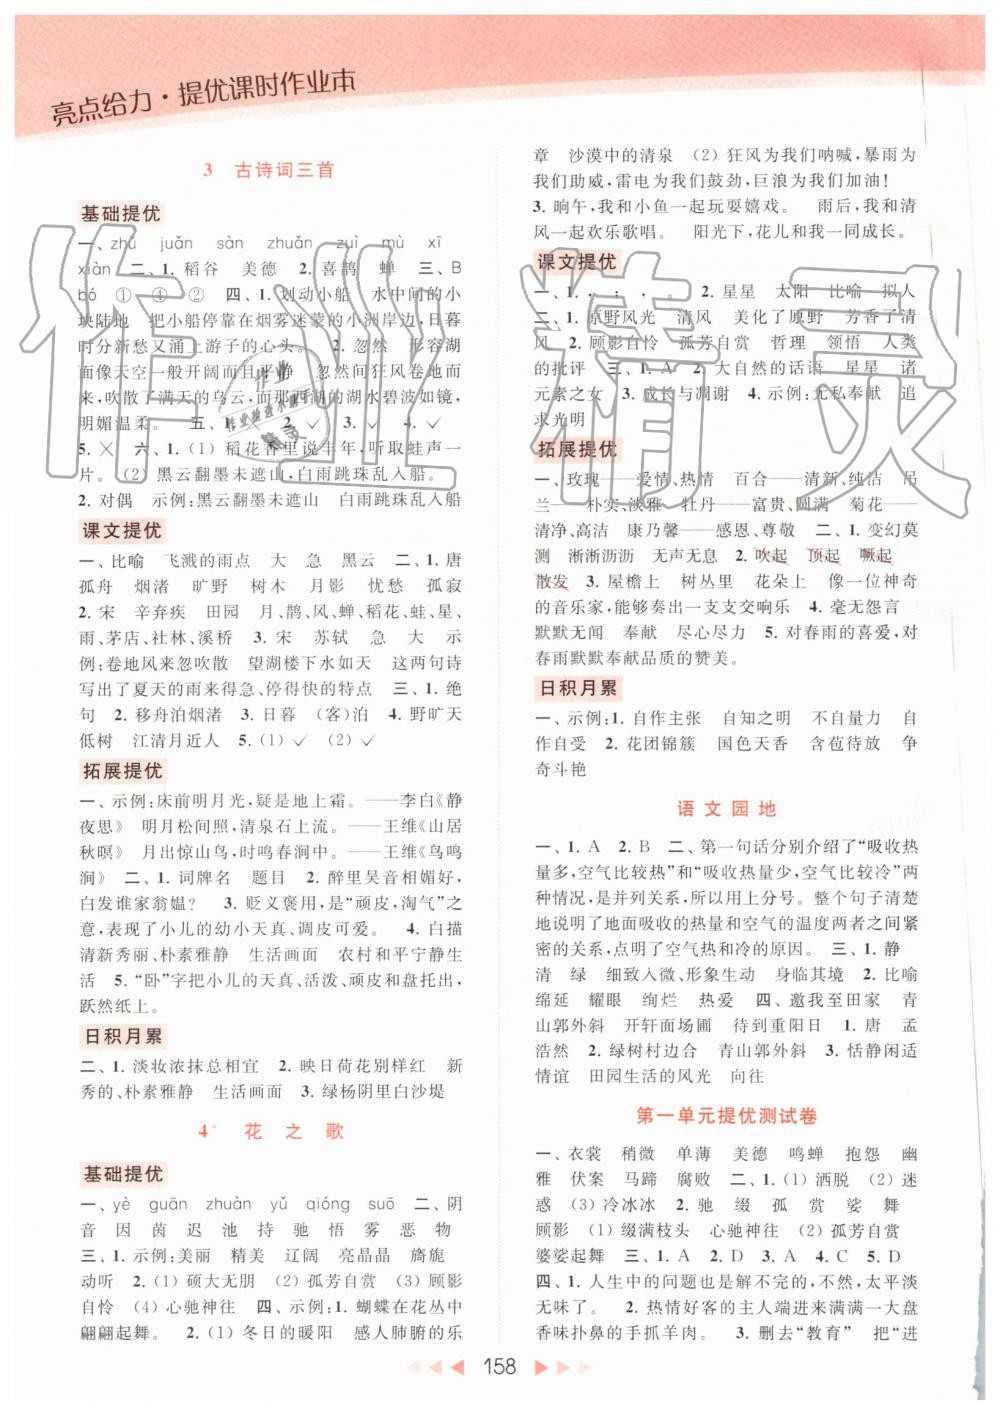 亮点给力·提优课时作业本
3 古诗词三首
基础提优
一、zhǔ juǎn sàn zhuǎn zuì mù xī
xiàn 二、1. 稻谷 美德 2. 喜鹊 蝉 三、B
bó ① ④ ② 四、1. 划动小船 水中间的小
块陆地 把小船停靠在烟雾迷蒙的小洲岸边,日暮
时分新愁又涌上游子的心头。 2. 忽然 形容湖
面像天空一般开阔而且平静 忽然间狂风卷地而
来,吹散了满天的乌云,而那西湖的湖水碧波如镜,
明媚温柔。 五、1. ✓ 2. ✓ 3. ✓ 4. ✓
5. ✕ 六、1. (1) 稻花香里说丰年,听取蛙声一
片。 (2) 黑云翻墨未遮山,白雨跳珠乱入船。
2. 对偶 示例:黑云翻墨未遮山 白雨跳珠乱入船
课文提优
一、比喻 飞溅的雨点 大 急 黑云 二、1. 唐
孤舟 烟渚 旷野 树木 月影 忧愁 孤寂
2. 宋 辛弃疾 田园 月、鹊、风、蝉、稻花、蛙、星、
雨、茅店、社林、溪桥 3. 宋 苏轼 急 大 示
例:卷地风来忽吹散 望湖楼下水如天 这两句诗
写出了夏天的雨来得急、停得快的特点 三、1. 绝
句 2. 移舟泊烟渚 3. 日暮 (客)泊 4. 野旷天
低树 江清月近人 5. (1) ✓ (2) ✓
拓展提优
一、示例:床前明月光,疑是地上霜。——李白《静
夜思》 明月松间照,清泉石上流。——王维《山居
秋暝》 月出惊山鸟,时鸣春涧中。——王维《鸟鸣
涧》 二、1. 词牌名 题目 2. 醉里吴音相媚好,
白发谁家翁媪? 3. 贬义褒用,是“顽皮,淘气”之
意,表现了小儿的幼小天真、调皮可爱。 4. 白描
清新秀丽、朴素雅静 生活画面 农村和平宁静生
活 5. “卧”字把小儿的天真、活泼、顽皮和盘托出,
跃然纸上。
日积月累
二、1. 淡妆浓抹总相宜 2. 映日荷花别样红 新
秀的、朴素雅静 生活画面 3. 绿杨阴里白沙堤
4* 花之歌
基础提优
一、yè guān zhuàn yǔ qióng suō 二、阴
音 因 茵 迟 池 持 驰 悟 雾 恶 物
三、1. 示例:美丽 精美 辽阔 亮晶晶 旖旎
动听 2. (1) 硕大无朋 (2) 孤芳自赏 (3) 顾影
自怜 (4) 心驰神往 四、示例:1. 蝴蝶在花丛中
翩翩起舞。 2. (1) 冬日的暖阳 感人肺腑的乐
章 沙漠中的清泉 (2) 狂风为我们呐喊,暴雨为
我们助威,雷电为我们鼓劲,巨浪为我们加油!
3. 晌午,我和小鱼一起玩耍嬉戏。 雨后,我和清
风一起欢乐歌唱。 阳光下,花儿和我一同成长。
课文提优
一、1. , ; , 。 2. 星星 太阳 比喻 拟人
二、1. 原野风光 清风 美化了原野 芳香了清
风 2. 顾影自怜 孤芳自赏 哲理 领悟 人类
的批评 三、1. A 2. 大自然的话语 星星 诸
元素之女 3. 成长与凋谢 4. 示例:无私奉献 追
求光明
拓展提优
一、玫瑰——爱情、热情 百合——清新、纯洁 吊
兰——朴实、淡雅 牡丹——富贵、圆满 菊花——
清净、高洁 康乃馨——感恩、尊敬 二、1. 变幻莫
测 淅淅沥沥 无声无息 2. 吹起 顶起 噘起
散发 3. 屋檐上 树丛里 花朵上 像一位神奇
的音乐家,能够奏出一支支交响乐 4. 毫无怨言
默默无闻 奉献 尽心尽力 5. 对春雨的喜爱,对
春雨默默奉献品质的赞美。
日积月累
一、示例:1. 自作主张 自知之明 不自量力 自
作自受 2. 花团锦簇 国色天香 含苞待放 争
奇斗艳
语文园地
一、1. A 2. B 二、第一句话分别介绍了“吸收热
量多,空气比较热”和“吸收热量少,空气比较冷”两
种情况,是并列关系,所以用上分号。整个句子清楚
地说明了地面吸收的热量和空气的温度两者之间紧
密的关系,点明了空气热和冷的原因。 三、1. 静
清 绿 细致入微、形象生动 身临其境 2. 比喻
绵延 耀眼 绚烂 热爱 四、邀我至田家 青
山郭外斜 开轩面场圃 待到重阳日 1. 唐 孟
浩然 2. 绿树村边合 青山郭外斜 3. 恬静闲适
情谊 田园生活的风光 向往
第一单元提优测试卷
一、衣裳 稍微 单薄 美德 鸣蝉 抱怨 幽
雅 伏案 马蹄 腐败 二、1. (1) 洒脱 (2) 迷
惑 (3) 冷冰冰 2. 驰 缀 孤 赏 娑 舞
顾影 (1) 缀满枝头 心驰神往 (2) 孤芳自赏
婆娑起舞 三、1. A 2. D 3. A 4. C 5. D
四、1. 人生中的问题也是解不完的,不然,太平淡
无味了。 2. 热情好客的主人端进来一大盘
香味扑鼻的手抓羊肉。 3. 删去“教育” 把“进
158
作业精灵